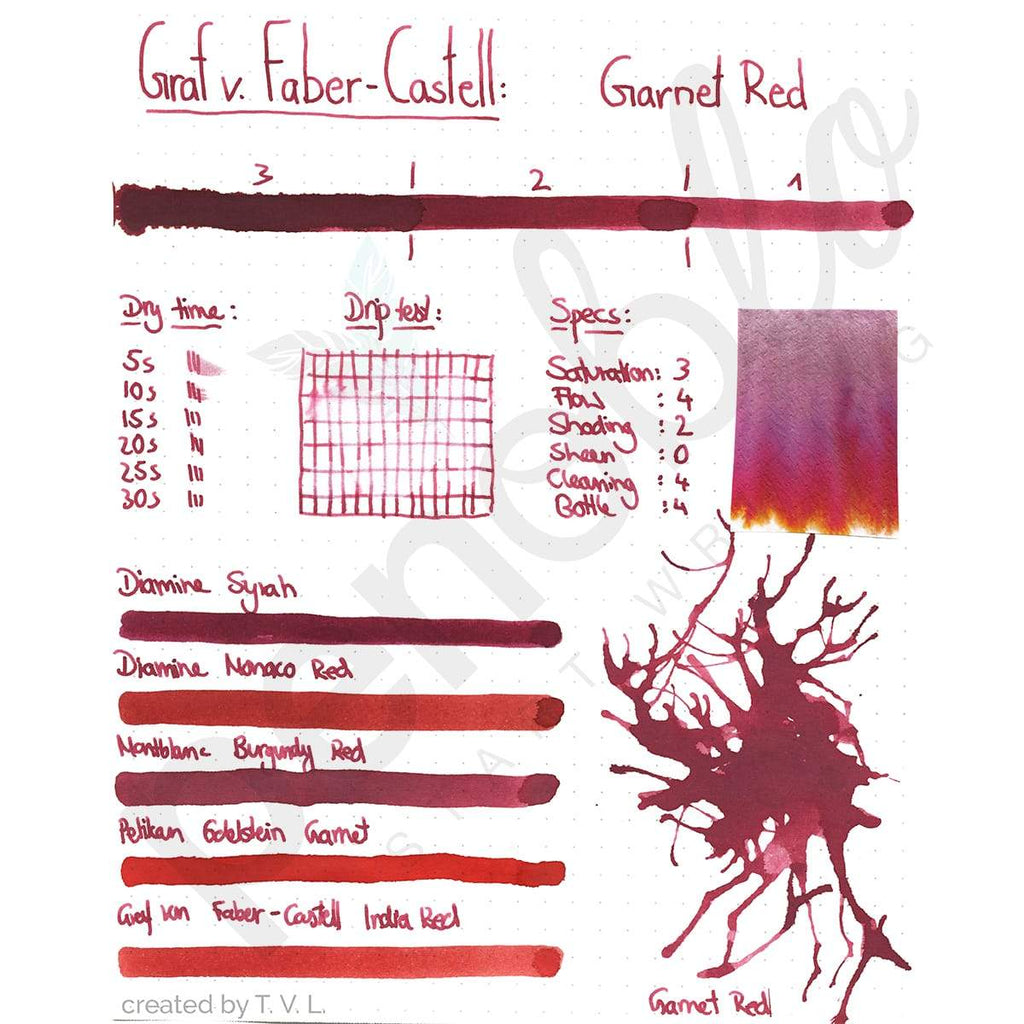 Graf v. Faber-Castell: Garnet Red
3 2 1
Dry time:
5s
10s
15s
20s
25s
30s
Drip test:
Specs:
Saturation: 3
Flow : 4
Shading : 2
Sheen : 0
Cleaning : 4
Bottle : 4
Diamine Syrah
Diamine Monaco Red
Montblanc Burgundy Red
Pelikan Edelstein Garnet
Graf von Faber-Castell India Red
Garnet Red
created by T. V. L.
penoblo
START WRITING